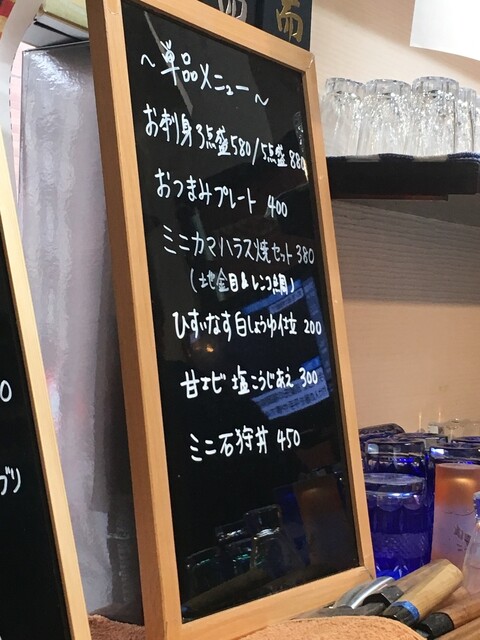 ～単品メニュー～
お刺身3点盛580/5点盛880
おつまみプレート 400
ミニカマハラス焼セット380
(地金目&レンコ鯛)
ひすいなす白しょうゆ仕立 200
甘エビ塩こうじあえ 300
ミニ石狩丼 450
ブリ